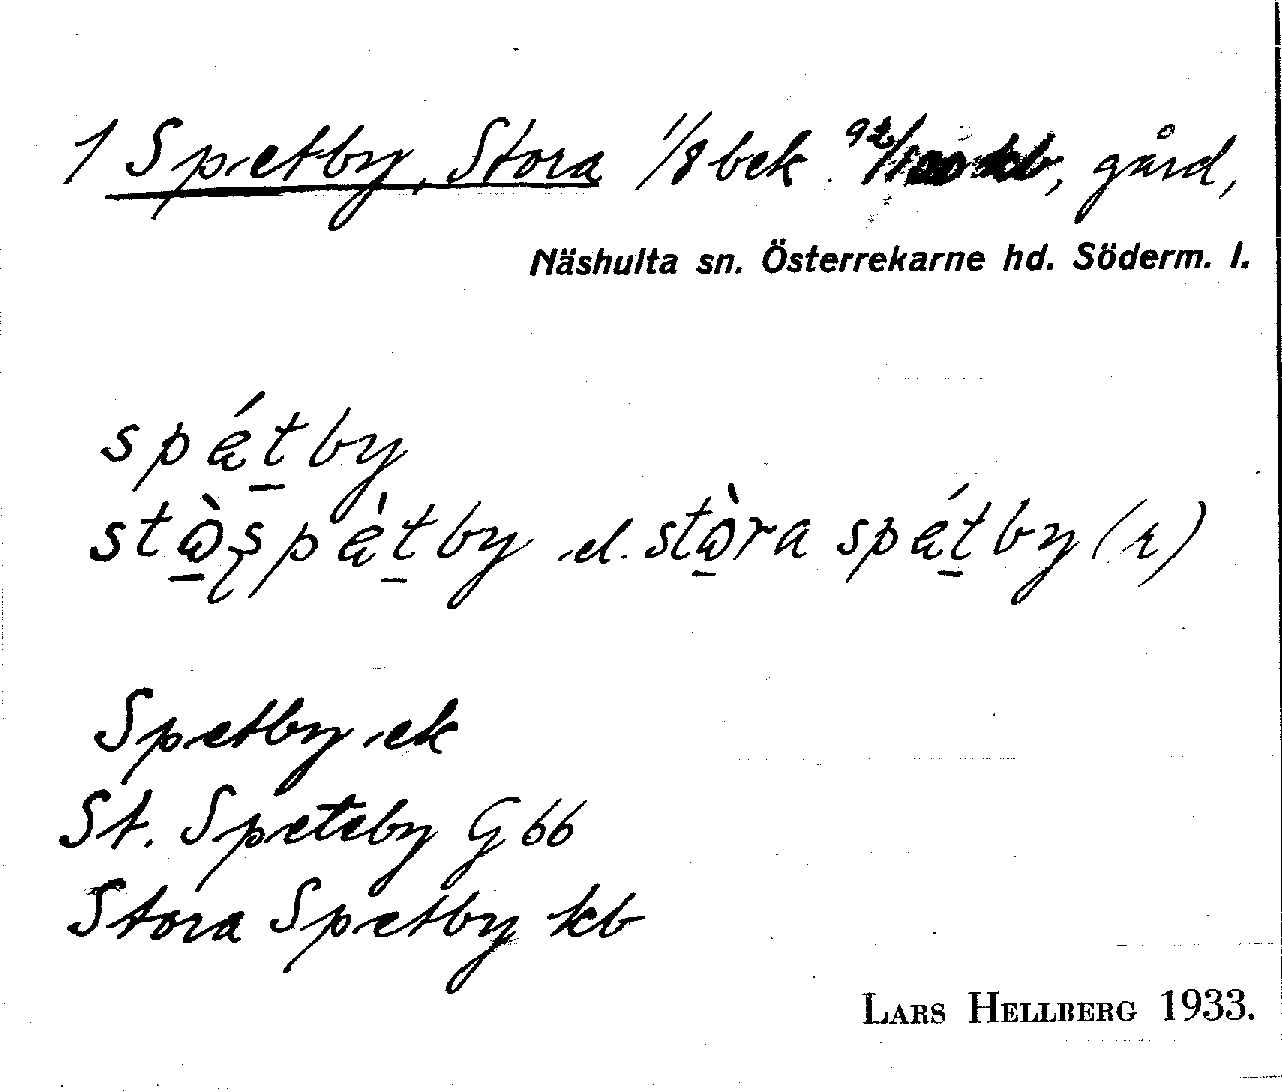 1 Spetby, Stora 1/8 bek. gård,
Näshulta sn. Österrekarne hd. Söderm. l.
spǽtby
stɷ̀ʂpæ̀tby el. stɷ̀ra spǽtby (r)
Spetby ek
St. Speteby G 66
Stora Spetby kb
LARS HELLBERG 1933.